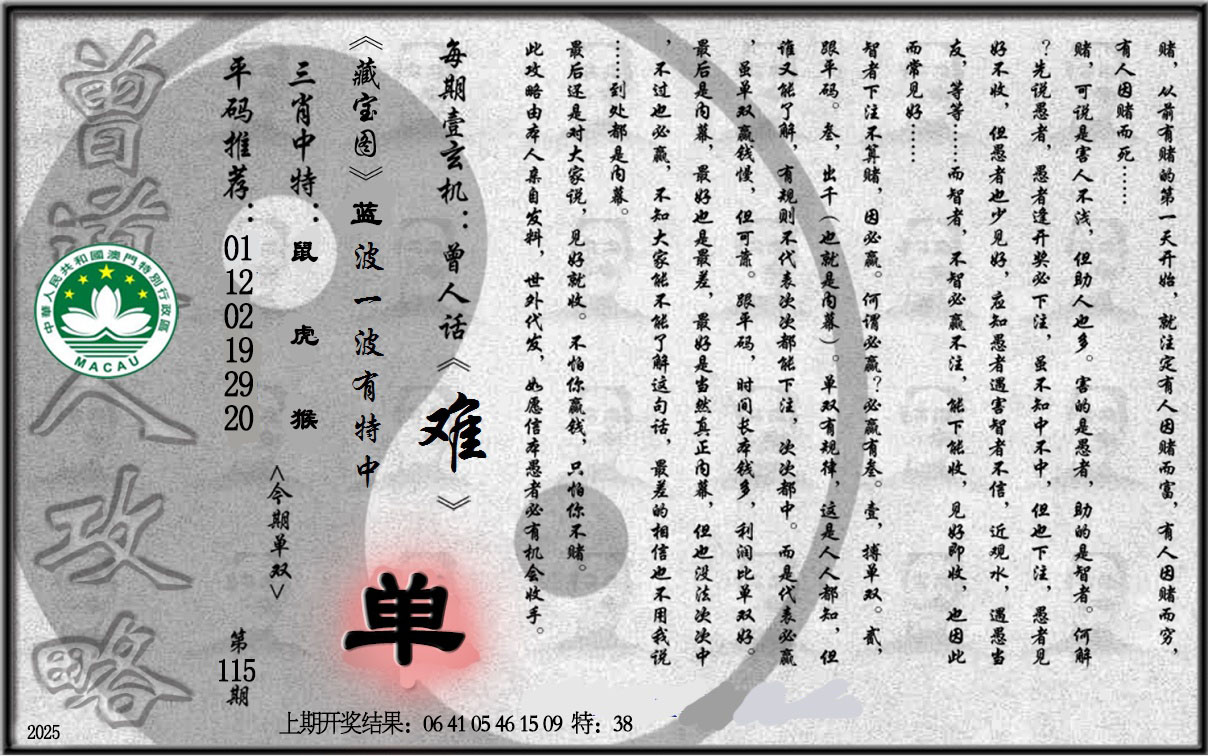 赌，从前有赌的第一天开始，就注定有人因赌而富，有人因赌而穷，
有人因赌而死……
赌，可说是害人不浅，但助人也多。害的是愚者，助的是智者。何解
？先说愚者，愚者逢开奖必下注，虽不知中不中，但也下注，愚者见
好不收，但愚者也少见好，应知愚者遇害智者不信，近观水，遇愚当
友，等等……而智者，不智必赢不注，能下能收，见好即收，也因此
而常见好……
智者下注不算赌，因必赢。何谓必赢？必赢有叁。壹，搏单双。贰，
跟平码。叁，出千（也就是内幕）。单双有规律，这是人人都知，但
谁又能了解，有规则不代表次次都能下注，次次都中。而是代表必赢
，虽单双赢钱慢，但可靠。跟平码，时间长本钱多，利润比单双好。
最后是内幕，最好也是最差，最好是当然真正内幕，但也没法次次中
，不过也必赢，不知大家能不能了解这句话，最差的相信也不用我说
……到处都是内幕。
最后还是对大家说，见好就收。不怕你赢钱，只怕你不赌。
此攻略由本人亲自发料，世外代发，如愿信本愚者必有机会收手。
每期壹玄机：曾人话《难》
《藏宝图》蓝波一波有特中
三肖中特：鼠 虎 猴
平码推荐：01 12 02 19 29 20
<今期单双>
单
第115期
曾道人攻略
中華人民共和國澳門特別行政區
MACAU
上期开奖结果：06 41 05 46 15 09 特：38
2025